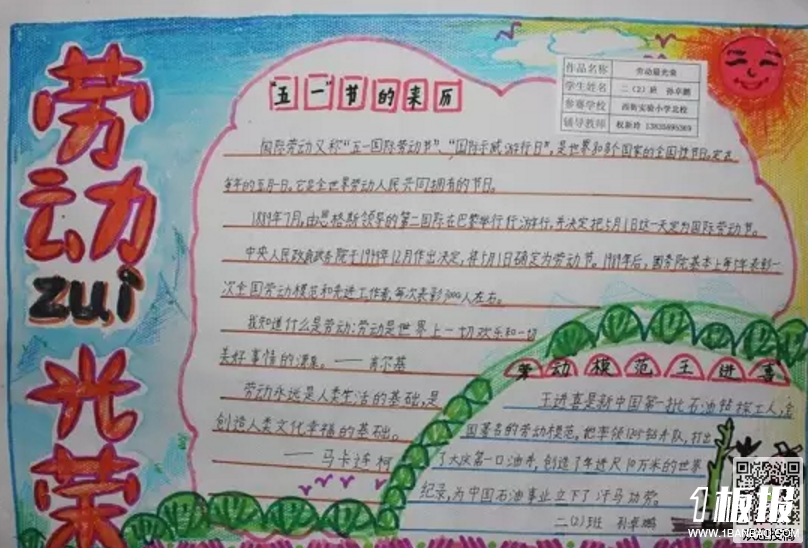 劳动
zui
光荣
作品名称 劳动最光荣
学生姓名 二（2）班 孙卓鹏
参赛学校 西街实验小学北校
辅导教师 权新玲 13835695369
"五一"节的来历
国际劳动又称"五一国际劳动节"、"国际示威游行日"，是世界和多个国家的全国性节日。定在
每年的五月一日。它是全世界劳动人民共同拥有的节日。
1889年7月，由恩格斯领导的第二国际在巴黎举行行游行，并决定把5月1日这一天定为国际劳动节。
中央人民政府政务院于1949年12月作出决定，将5月1日确定为劳动节。1989年后，国务院基本上每5年表彰一
次全国劳动模范和先进工作者，每次表彰3000人左右。
我知道什么是劳动：劳动是世界上一切欢乐和一切
美好事情的源泉。——高尔基
劳动永远是人类生活的基础，是
创造人类文化幸福的基础。
——马卡连柯
劳动模范王进喜
王进喜是新中国第一批石油钻探工人，全
国著名的劳动模范，他率领1205钻井队，打出
了大庆第一口油井，创造了年进尺10万米的世界
纪录，为中国石油事业立下了汗马功劳。
二（2）班 孙卓鹏
板报
WWW.1BANBAO.COM